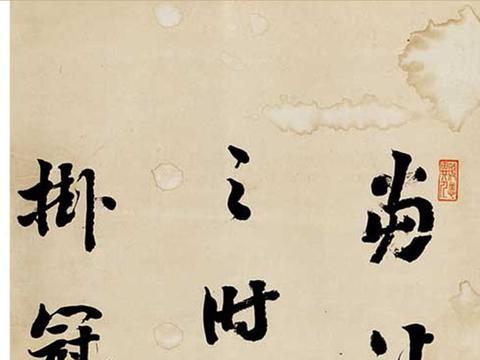 當
之時
掛冠